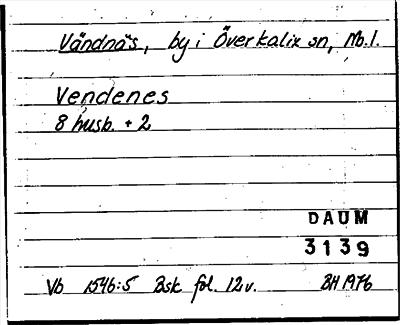 Vändnäs, by i Överkalix sn, Nb.l.
Vendenes
8 husb. + 2
DAUM
3139
Vb 1546:5 Bsk fol. 12v. BH 1976